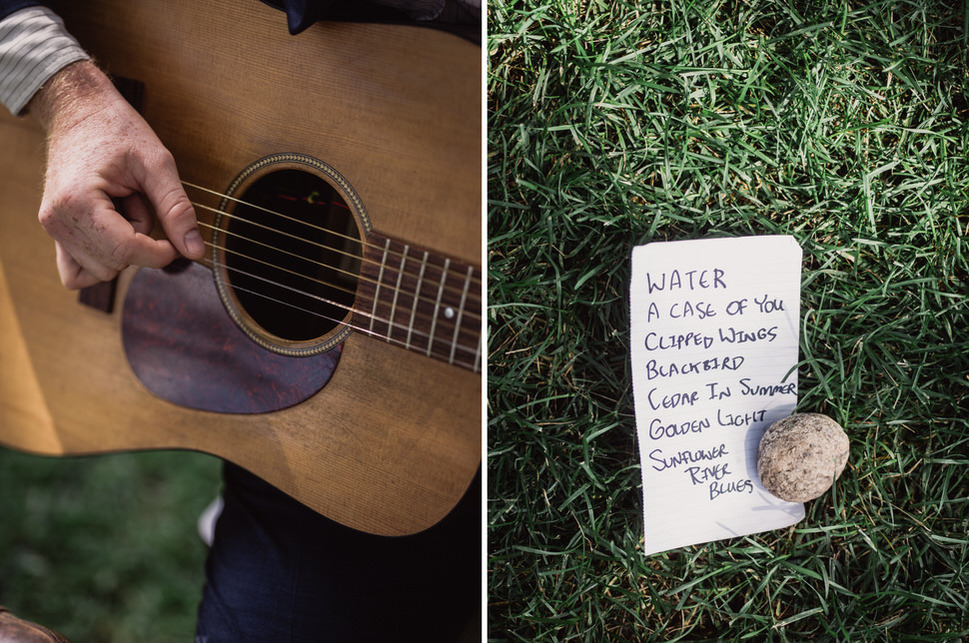 WATER
A CASE OF YOU
CLIPPED WINGS
BLACKBIRD
CEDAR IN SUMMER
GOLDEN LIGHT
SUNFLOWER
RIVER
BLUES